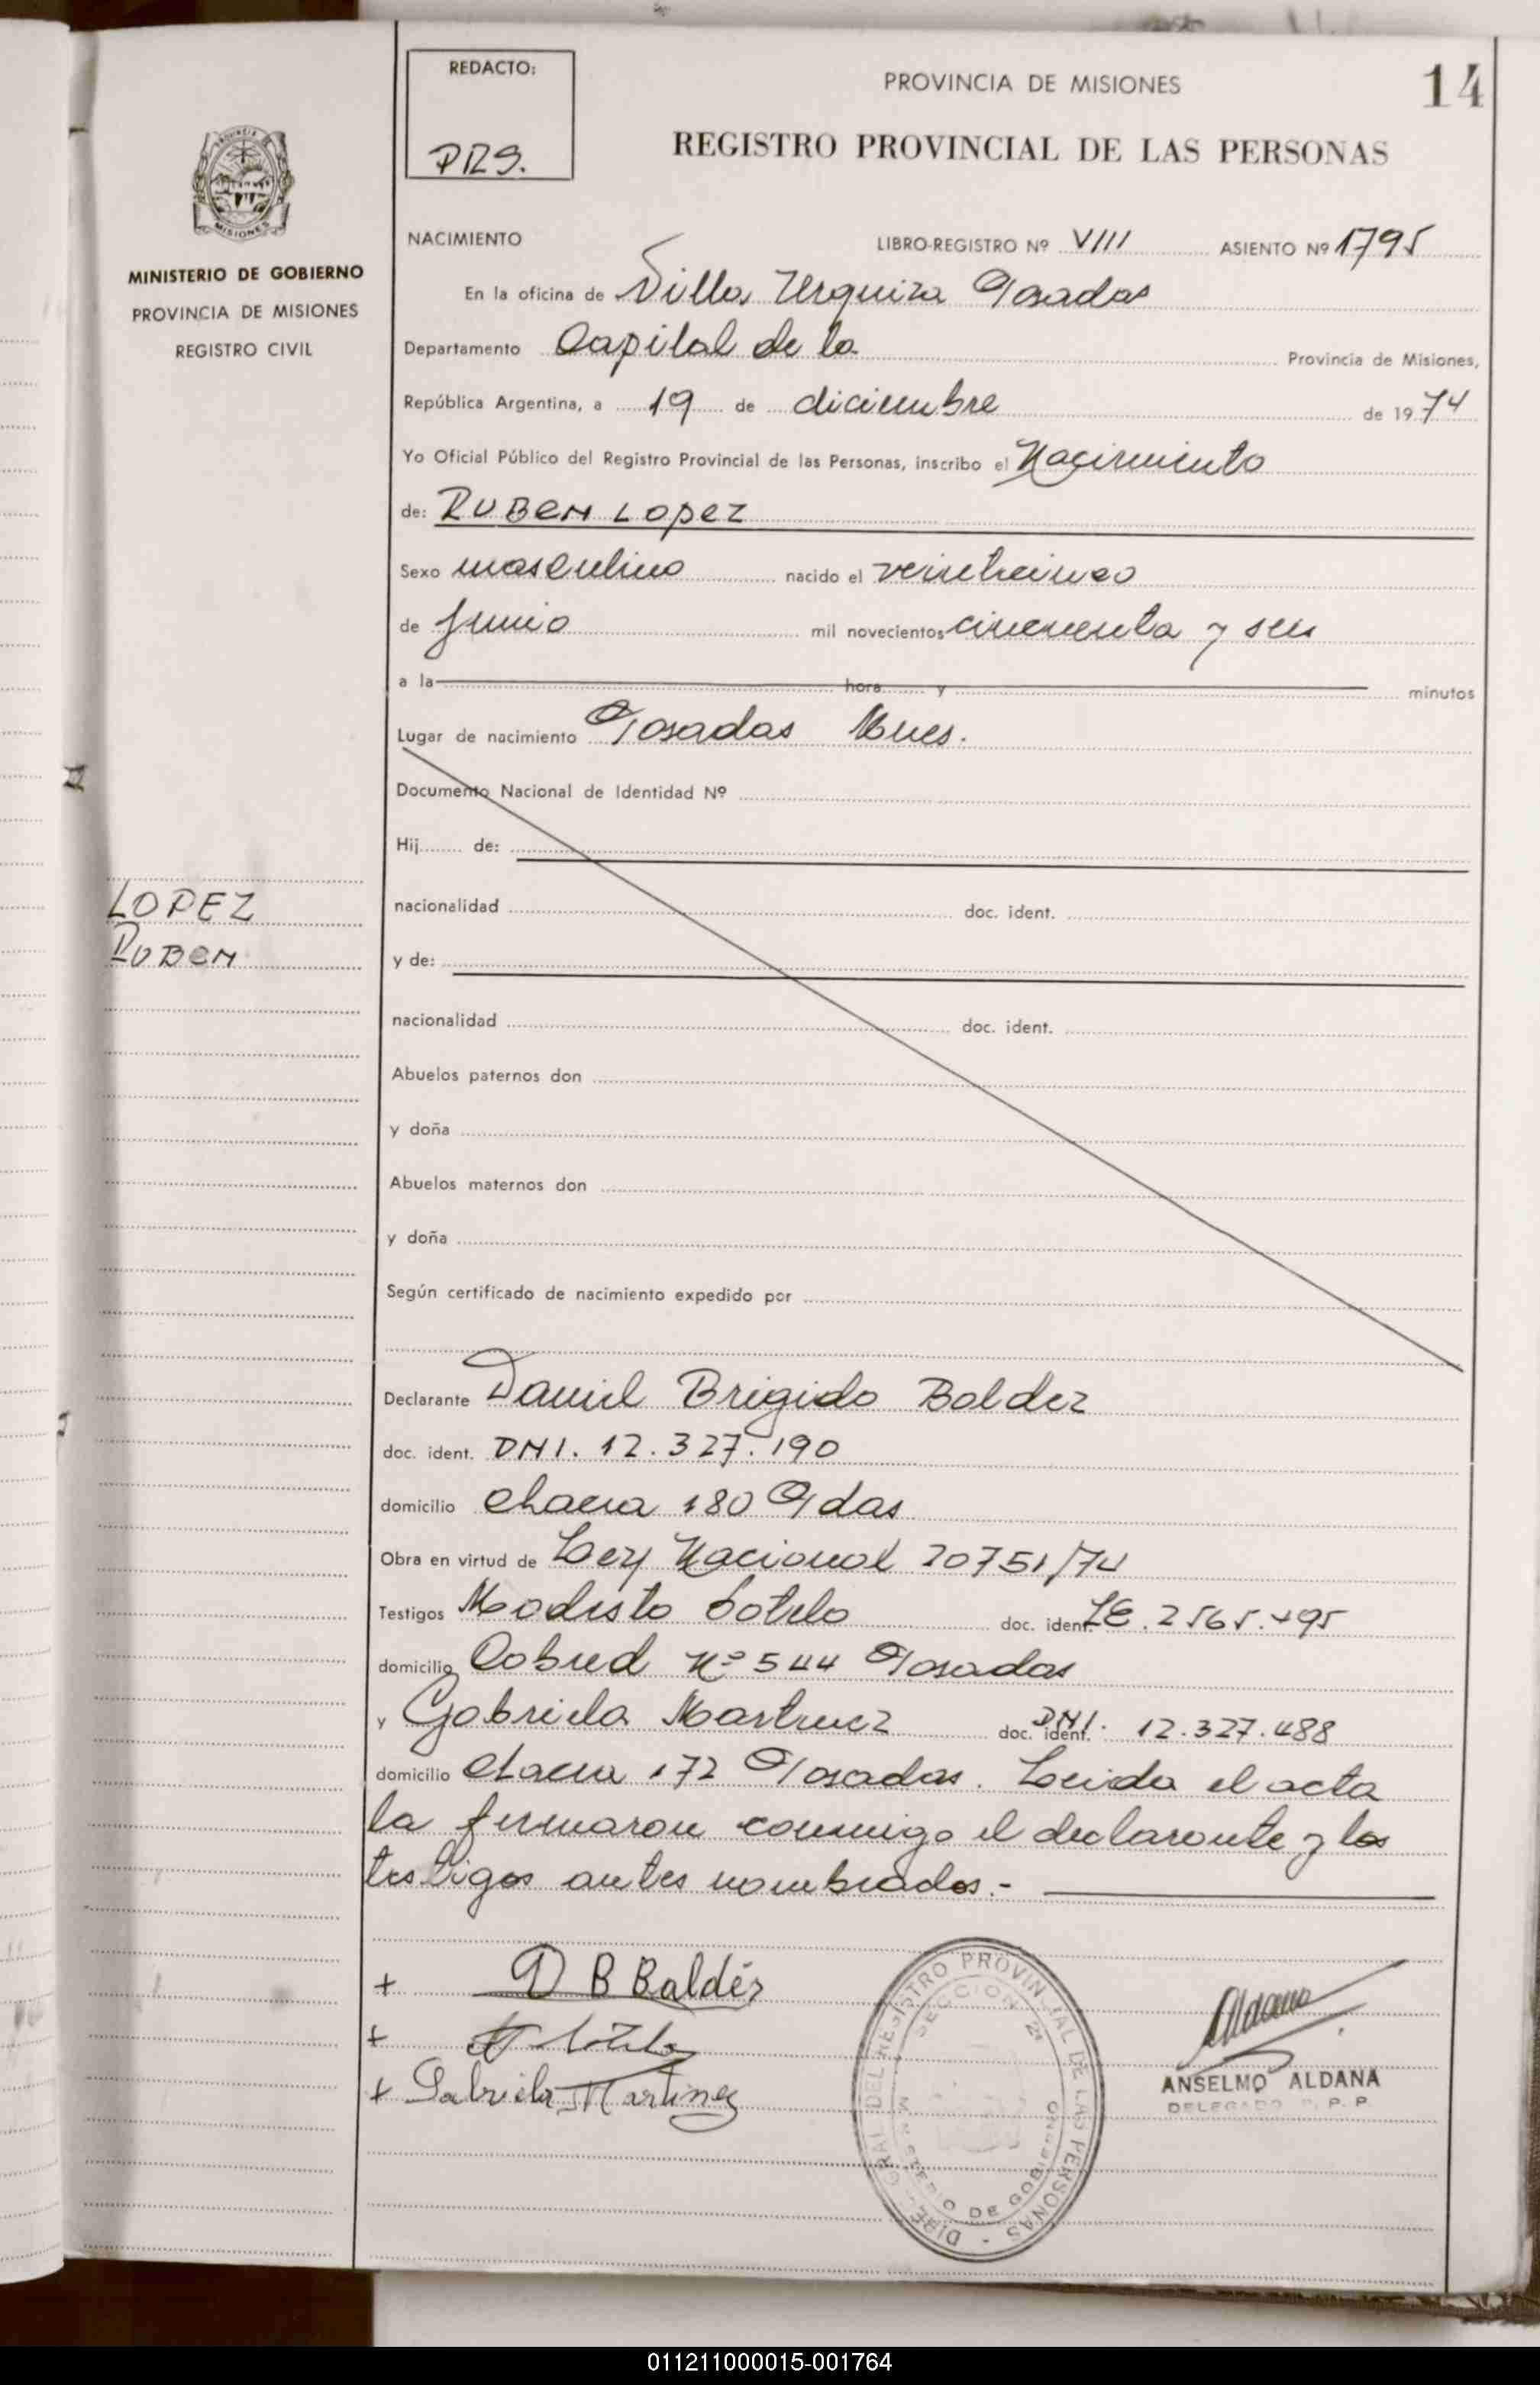 REDACTO:
PRS.
PROVINCIA DE MISIONES
14
REGISTRO PROVINCIAL DE LAS PERSONAS
PROVINCIA DE
MISIONES
MINISTERIO DE GOBIERNO
PROVINCIA DE MISIONES
REGISTRO CIVIL
NACIMIENTO LIBRO-REGISTRO Nº VIII ASIENTO Nº 1795
En la oficina de Villa Urquiza Posadas
Departamento Capital de la Provincia de Misiones,
República Argentina, a 19 de diciembre de 1974
Yo Oficial Público del Registro Provincial de las Personas, inscribo el Nacimiento
de: RUBEN LOPEZ
Sexo masculino nacido el veinticinco
de Junio mil novecientos cincuenta y seis
a la hora y minutos
Lugar de nacimiento Posadas Mnes.
Documento Nacional de Identidad Nº
Hij de:
nacionalidad doc. ident.
LOPEZ
RUBEN
y de:
nacionalidad doc. ident.
Abuelos paternos don
y doña
Abuelos maternos don
y doña
Según certificado de nacimiento expedido por
Declarante Daniel Brigido Baldez
doc. ident. DNI. 12.327.190
domicilio chacra 180 Pdas
Obra en virtud de Ley Nacional 20751/74
Testigos Modesto Sotelo doc. ident. LE. 2565.495
domicilio Cabred Nº 544 Posadas
y Gabriela Martinez doc. ident. DNI. 12.327.488
domicilio chacra 172 Posadas. Leida el acta
la firmaron conmigo el declarante y los
testigos antes nombrados.-
+ D B Baldéz
+ Sotelo
+ Gabriela Martinez
DIREC. GRAL. DEL REGISTRO PROVINCIAL DE LAS PERSONAS
SECCION 2ª
MINISTERIO DE GOBIERNO
Aldana
ANSELMO ALDANA
DELEGADO R. P. P.
011211000015-001764